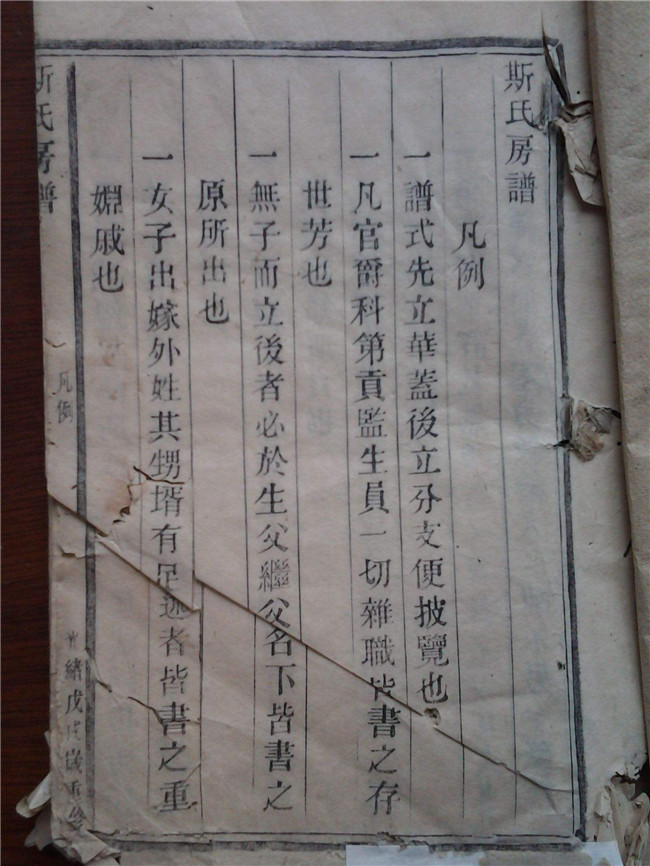 斯氏房譜
凡例
一譜式先立華蓋後立分支便披覽也
一凡官爵科第貢監生員一切雜職皆書之存
世芳也
一無子而立後者必於生父繼父名下皆書之
原所出也
一女子出嫁外姓其甥壻有足述者皆書之重
婣戚也
斯氏房譜
凡例
光緒戊戌歲重修